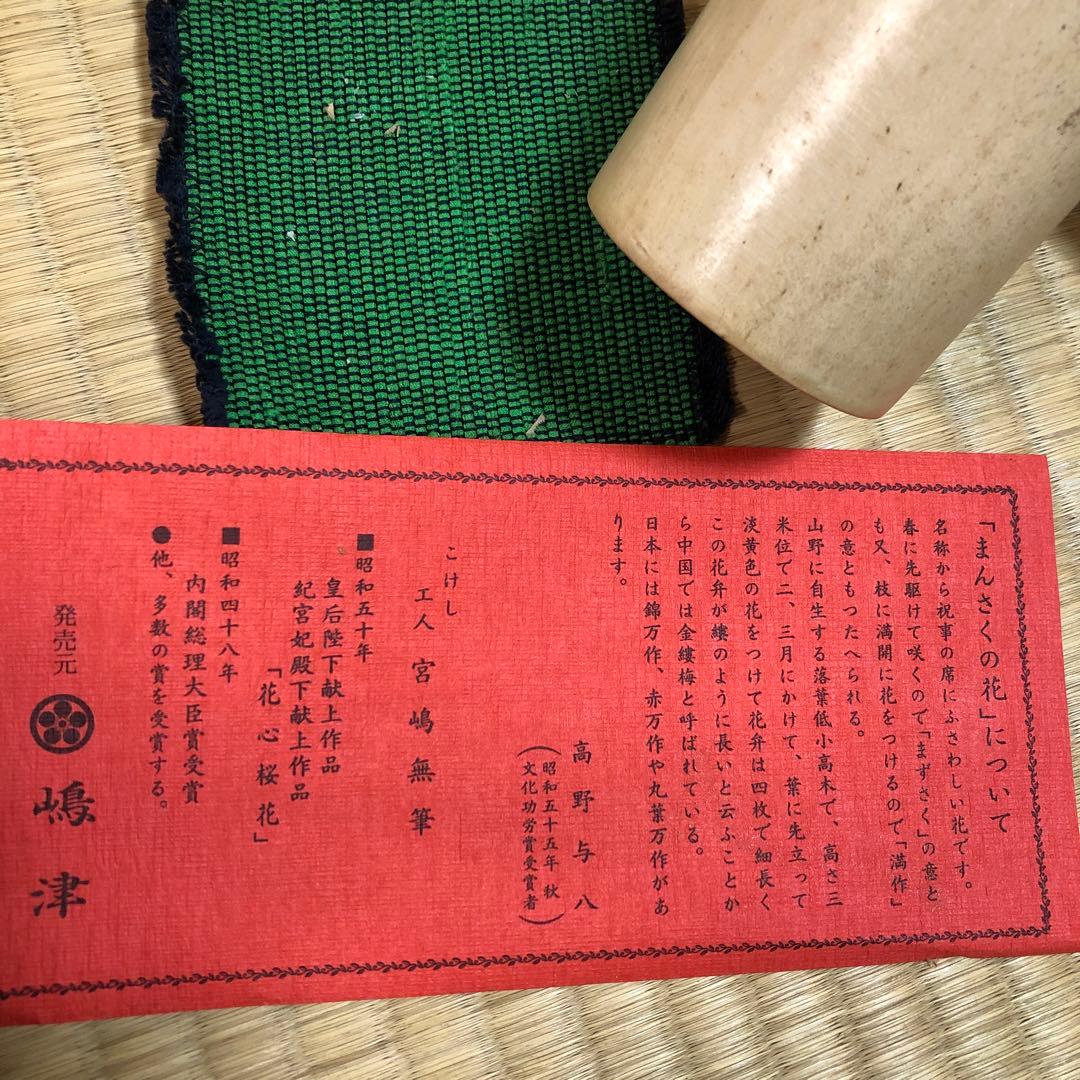 「まんさくの花」について
名称から祝事の席にふさわしい花です。
春に先駆けて咲くので「まずさく」の意と
も又、枝に満開に花をつけるので「満作」
の意ともつたへられる。
山野に自生する落葉低小高木で、高さ三
米位で二、三月にかけて、葉に先立って
淡黄色の花をつけて花弁は四枚で細長く
この花弁が縷のように長いと云ふことか
ら中国では金縷梅と呼ばれている。
日本には錦万作、赤万作や丸葉万作があ
ります。
高野与八
（昭和五十五年 秋
文化功労賞受賞者）
こけし
工人 宮嶋無筆
■昭和五十年
皇后陛下献上作品
紀宮妃殿下献上作品
「花心桜花」
■昭和四十八年
内閣総理大臣賞受賞
●他、多数の賞を受賞する。
発売元 嶋津